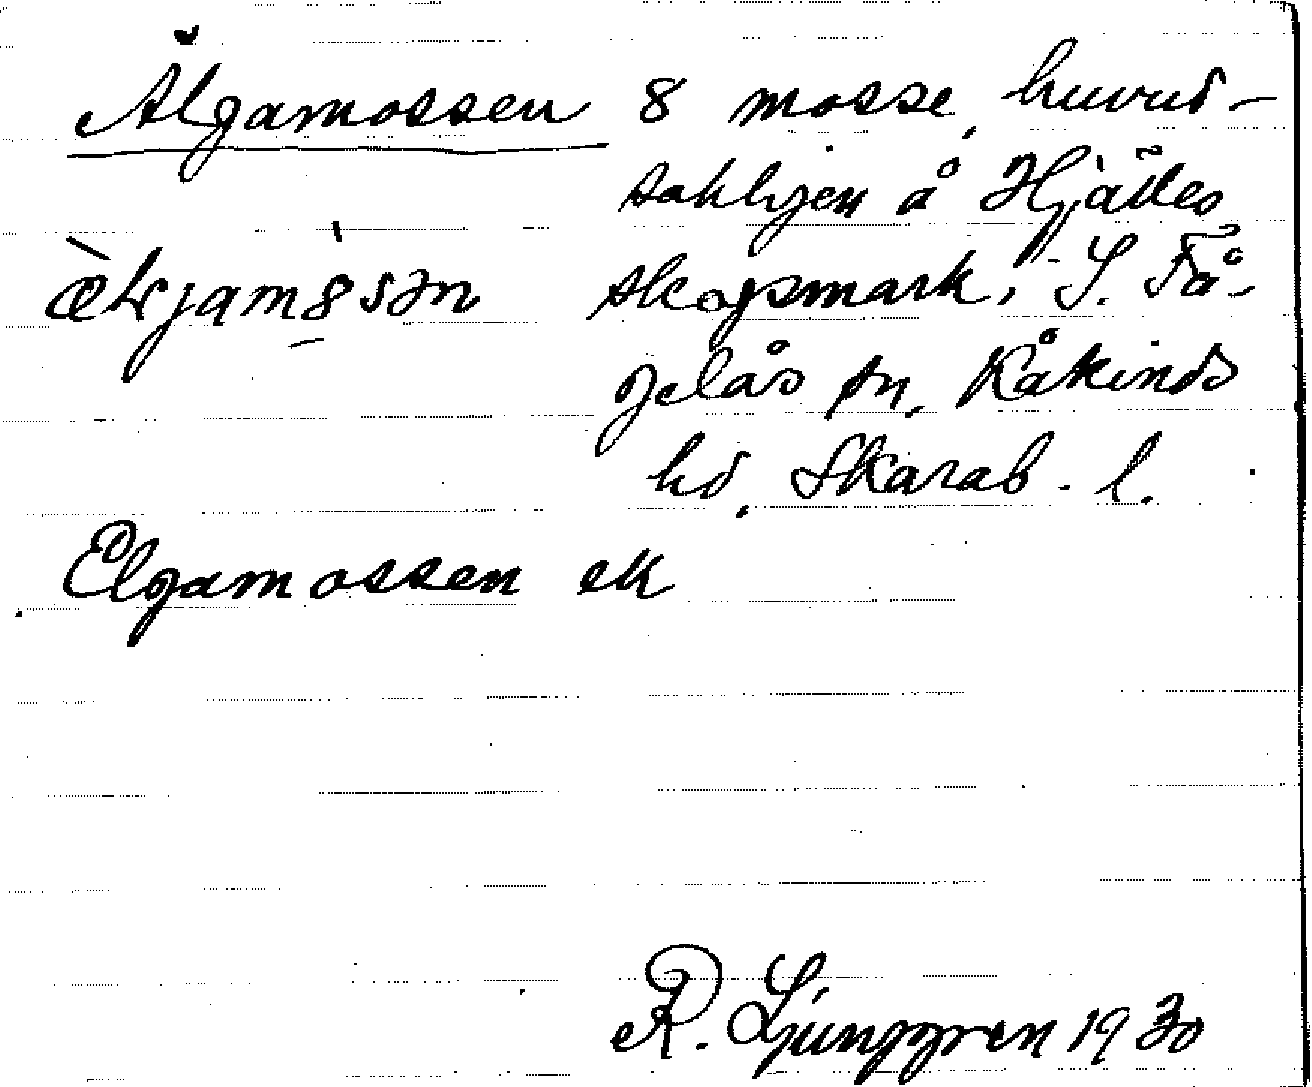 Älgamossen 8 mosse, huvud-
sakligen å Hjälles
skogsmark, S. Få-
gelås sn, Kåkinds
hd, Skarab. l.
Elgamossen ek
R. Ljunggren 1930